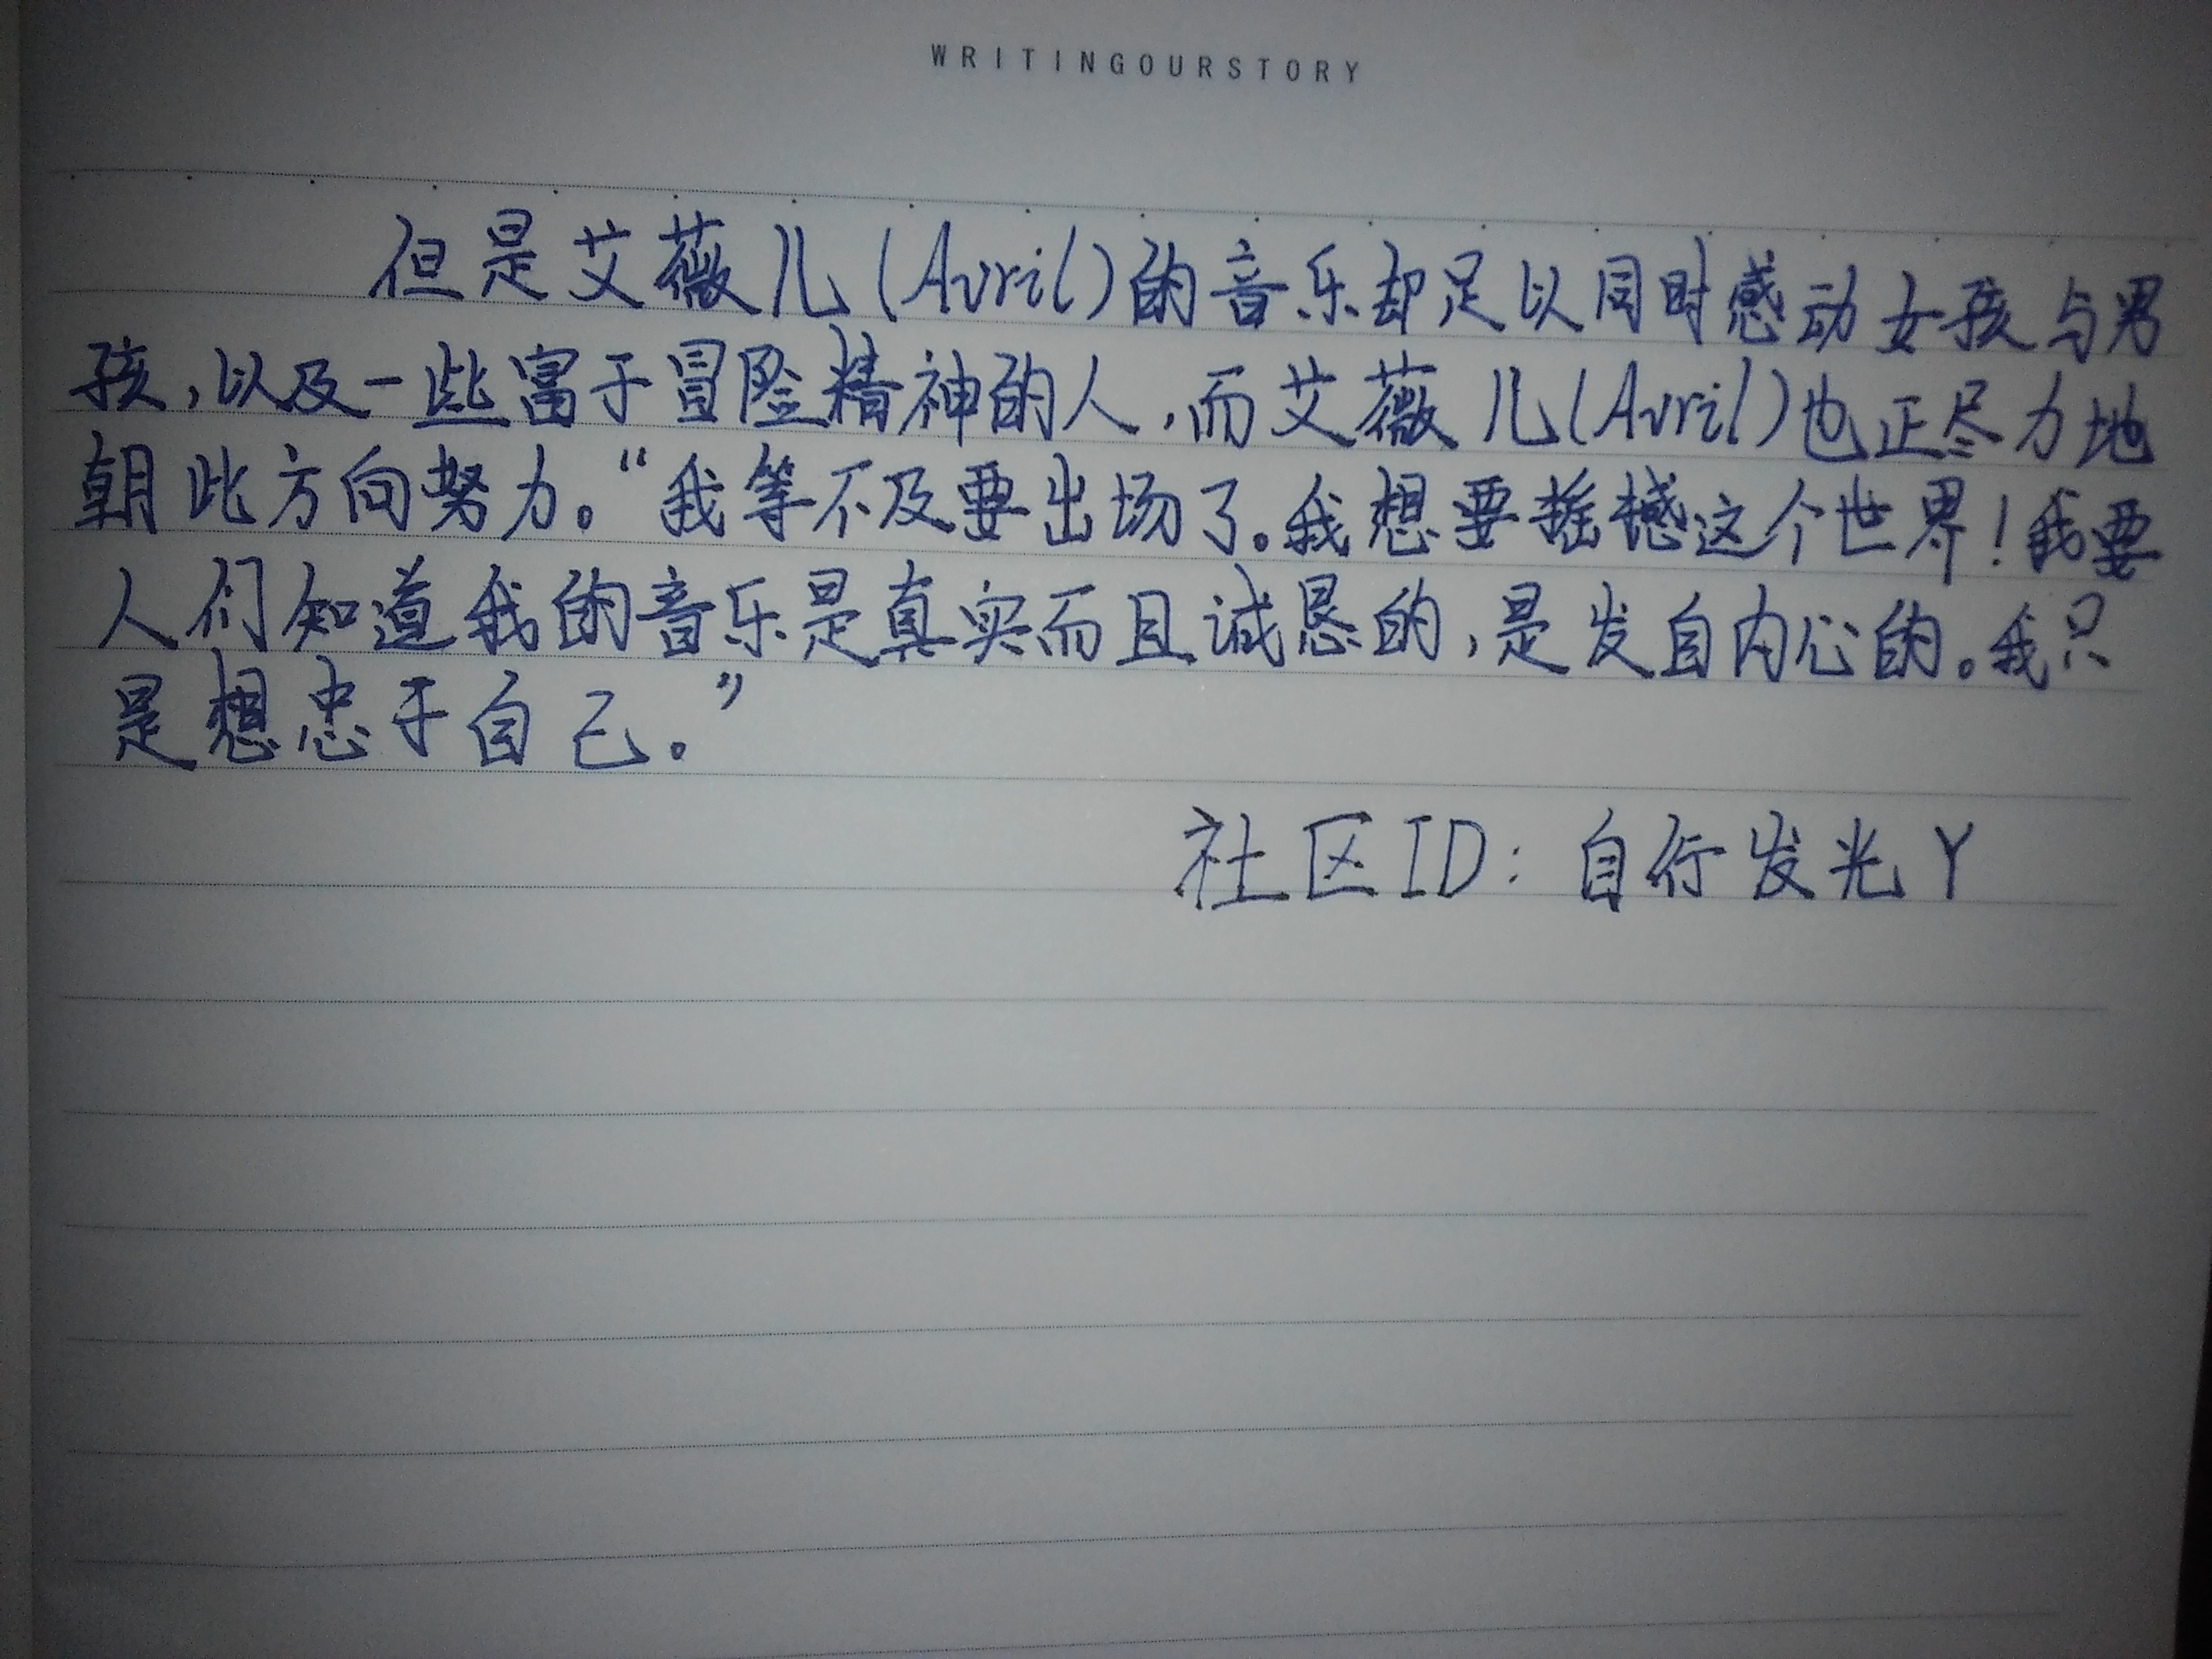 WRITINGOURSTORY
但是艾薇儿(Avril)的音乐却足以同时感动女孩与男
孩,以及一些富于冒险精神的人,而艾薇儿(Avril)也正尽力地
朝此方向努力。“我等不及要出场了。我想要摇撼这个世界!我要
人们知道我的音乐是真实而且诚恳的,是发自内心的。我只
是想忠于自己。”
社区ID:自行发光Y